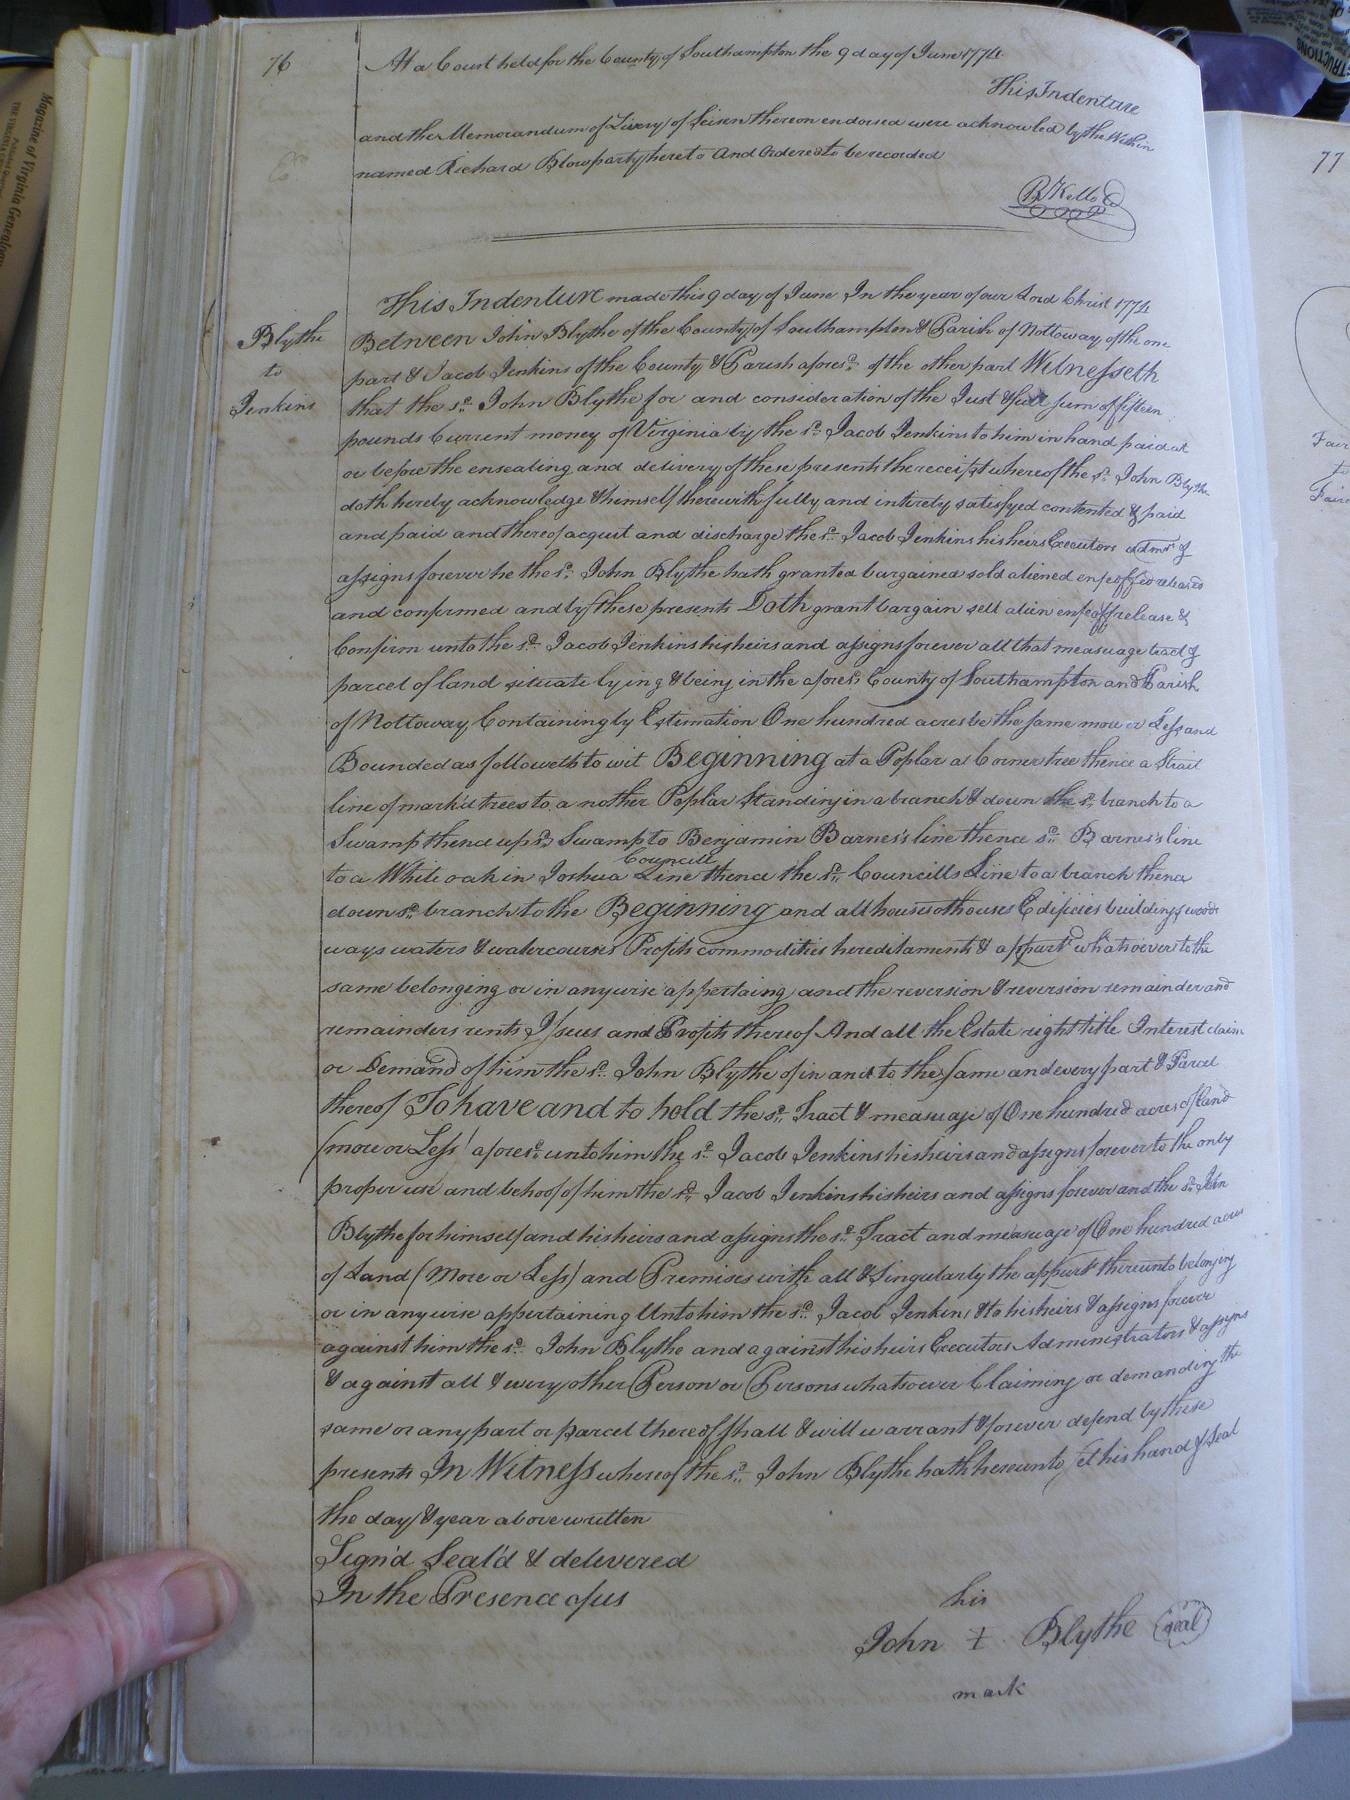 76
At a Court held for the County of Southampton the 9 day of June 1774
This Indenture
and the Memorandum of Livery of Seisen thereon endorsed were acknowled by the Within
named Richard Blow party hereto And Ordered to be recorded
R Kello
Blythe
to
Jenkins
This Indenture made this 9 day of June In the year of our Lord Christ 1774
Between John Blythe of the County of Southampton & Parish of Nottoway of the one
part & Jacob Jenkins of the County & Parish aforesd. of the other part Witnesseth
that the sd. John Blythe for and consideration of the Just & full sum of fifteen
pounds Current money of Virginia by the sd. Jacob Jenkins to him in hand paid at
or before the ensealing and delivery of these presents the receipt whereof the sd. John Blythe
doth hereby acknowledge & himself therewith fully and intirely satisfyed contented & paid
and paid and thereof acquit and discharge the sd. Jacob Jenkins his heirs Executors admrs. &
assigns forever he the sd. John Blythe hath granted bargained sold aliened enfeoffed released
and confirmed and by these presents Doth grant bargain sell alien enfeoff release &
Confirm unto the sd. Jacob Jenkins his heirs and assigns forever all that measuage tract &
parcel of land situate lying & being in the aforesd. County of Southampton and Parish
of Nottoway Containing by Estimation One hundred acres be the same more or Less and
Bounded as followeth to wit Beginning at a Poplar a Corner tree thence a Strait
line of mark'd trees to a nother Poplar Standing in a branch & down the sd. branch to a
Swamp thence up sd. Swamp to Benjamin Barnes's line thence sd. Barnes's line
Councill
to a White oak in Joshua Line thence the sd. Councills Line to a branch thence
down sd. branch to the Beginning and all houses othouses Edificies buildings woods
ways waters & watercourses Profits commodities hereditaments & appurts. whatsoever to the
same belonging or in anywise appertaing and the reversion & reversion remainder and
remainders rents Issues and Profits thereof And all the Estate right title Interest claim
or Demand of him the sd. John Blythe of in and to the same and every part & Parcel
thereof To have and to hold the sd. Tract & measuage of One hundred acres of land
(more or Less) aforesd. unto him the sd. Jacob Jenkins his heirs and assigns forever to the only
proper use and behoof of him the sd. Jacob Jenkins his heirs and assigns forever and the sd. John
Blythe for himself and his heirs and assigns the sd. Tract and measuage of One hundred acres
of Land (More or Less) and Premises with all & Singularly the appurts. thereunto belonging
or in anywise appertaining Unto him the sd. Jacob Jenkins & to his heirs & assigns forever
against him the sd. John Blythe and against his heirs Executors Administrators & assigns
& against all & every other Person or Persons whatsoever Claiming or demanding the
same or any part or parcel thereof shall & will warrant & forever defend by these
presents In Witness whereof the sd. John Blythe hath hereunto set his hand & Seal
the day & year above written
Sign'd Seal'd & delivered
In the Presence of us
his
John ‡ Blythe seal
mark
77